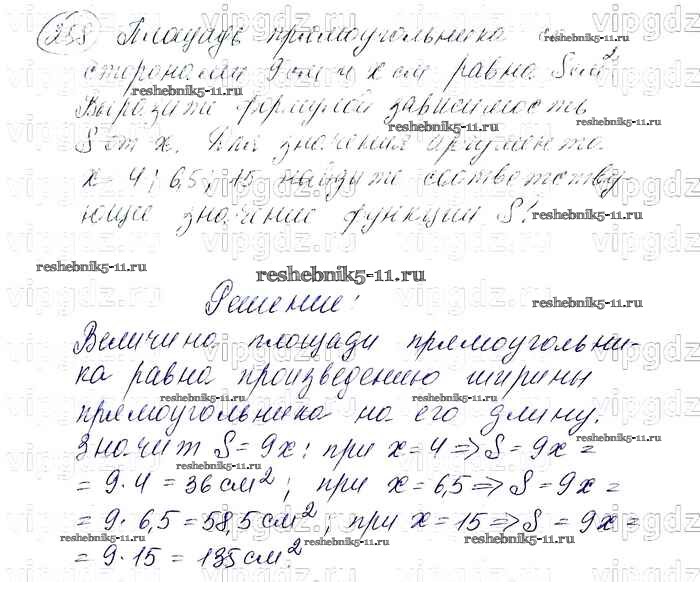 258 Площадь прямоугольника со
сторонами 9 см и x см равна S см².
Выразите формулой зависимость
S от x. Для значения аргумента
x = 4; 6,5; 15 найдите соответству-
ющие значение функции S.
reshebnik5-11.ru
Решение:
Величина площади прямоугольни-
ка равна произведению ширины
прямоугольника на его длину.
Значит S = 9x; при x = 4 => S = 9x =
= 9 · 4 = 36 см²; при x = 6,5 => S = 9x =
= 9 · 6,5 = 58,5 см²; при x = 15 => S = 9x =
= 9 · 15 = 135 см².